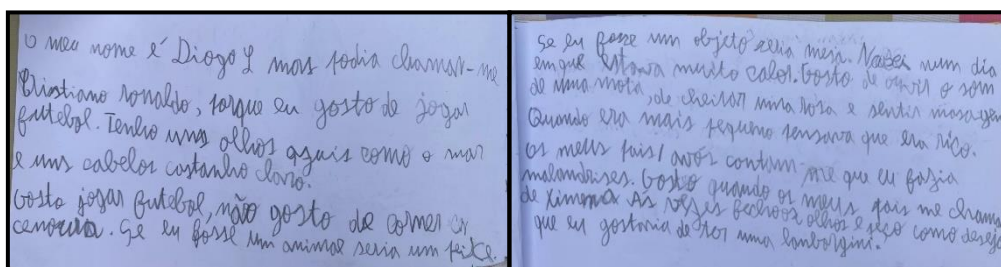 O meu nome é Diogo L mas podia chamar-me
Cristiano ronaldo, porque eu gosto de jogar
futebol. Tenho uns olhos azuis como o mar
e uns cabelos castanho claro.
Gosto jogar futebol, não gosto de comer
cenoura. Se eu fosse um animal seria um peixe.
Se eu fosse um objeto seria mesa. Nasci num dia
em que estava muito calor. Gosto de ouvir o som
de uma mota, de cheirar uma rosa e sentir masagen
Quando era mais pequeno pensava que era rico.
Os meus pais/avós contam-me que eu fazia
malandrises. Gosto quando os meus pais me chama
de Ximena As vezes fecho os olhos e peço como desejo
que eu gostaria de ter uma lanborgini.